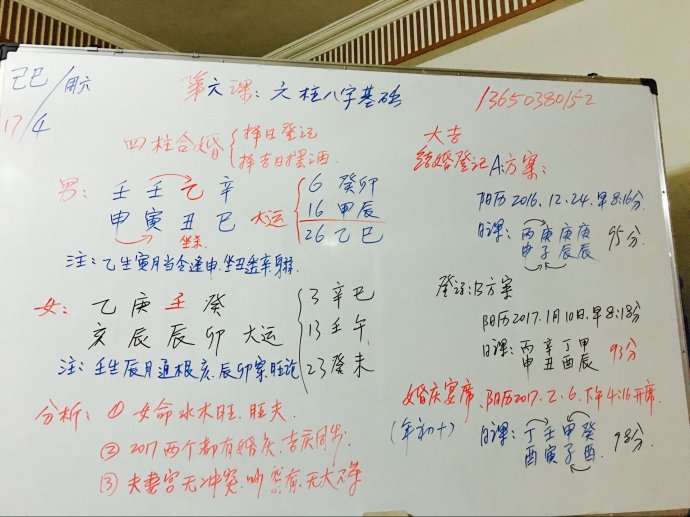 己巳/周六
17/4
第六课：六柱八字基础
13650380152
四柱合婚{择日登记
择吉日摆酒.
男：壬 壬 乙 辛
申 寅 丑 巳 大运
坐杀
6 癸卯
16 甲辰
26 乙巳
注：乙生寅月当令逢申.坐丑金辛.弱
女：乙 庚 壬 癸
亥 辰 辰 卯 大运
3 辛巳
13 壬午
23 癸未
注：壬生辰月通根亥.辰卯案.旺论
分析：① 女命水木旺.旺夫
② 2017两个都有婚庆.吉庆同步.
③ 夫妻宫无冲突.吵有.无大
大吉
结婚登记A方案：
阳历2016.12.24.早8:16分.
日课：丙庚庚庚
申子辰辰 95分.
登记:B方案
阳历2017.1月10日.早8:18分
日课：丙辛丁甲
申丑酉辰 93分
婚庆宴席.阳历2017.2.6.下午4:16开席.
(年初十) 日课：丁壬甲癸
酉寅子酉 98分.